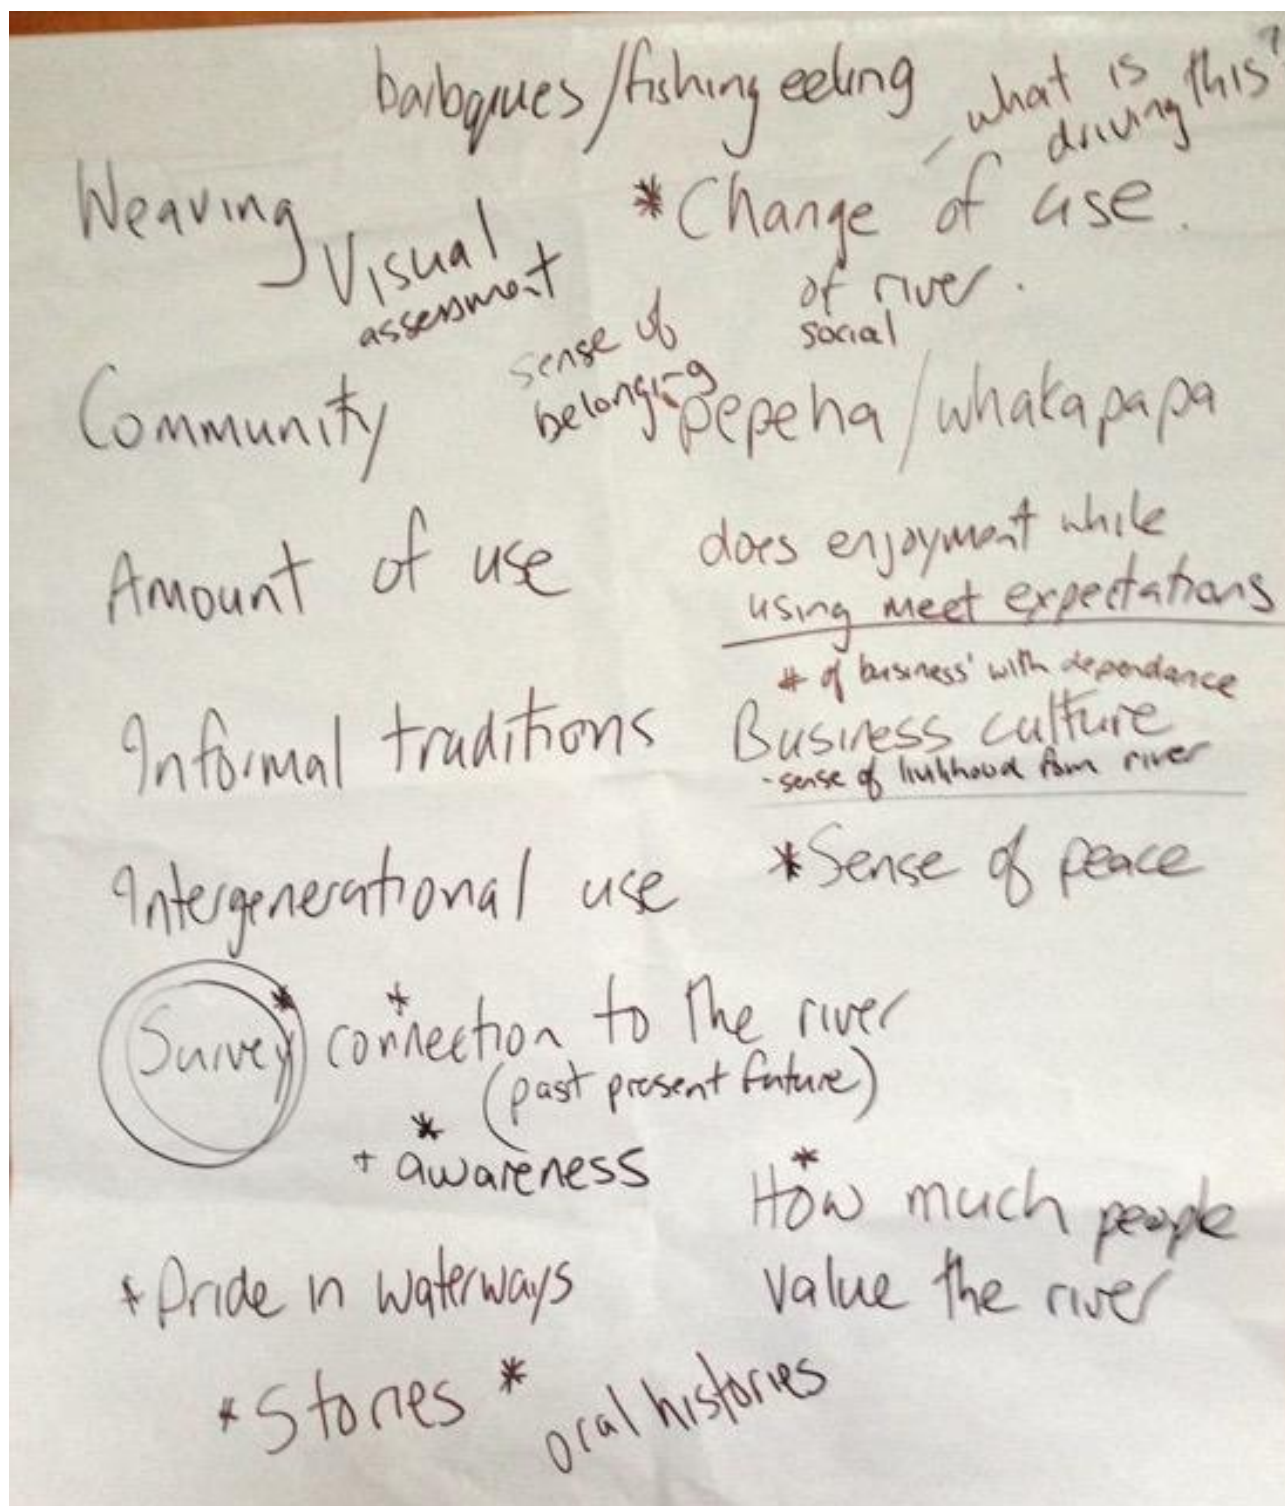 barbques/fishing eeling
what is
driving this?
Weaving
* Change of use.
of river.
social
Visual
assessment
sense of
belonging
Community
pepeha/whakapapa
Amount of use
does enjoyment while
using meet expectations
# of business' with dependance
Informal traditions
Business culture
- sense of livlihood from river
Intergenerational use
* Sense of peace
Survey *
* connection to the river
(past present future)
+ * awareness
* How much people
value the river
* Pride in waterways
* Stories *
oral histories